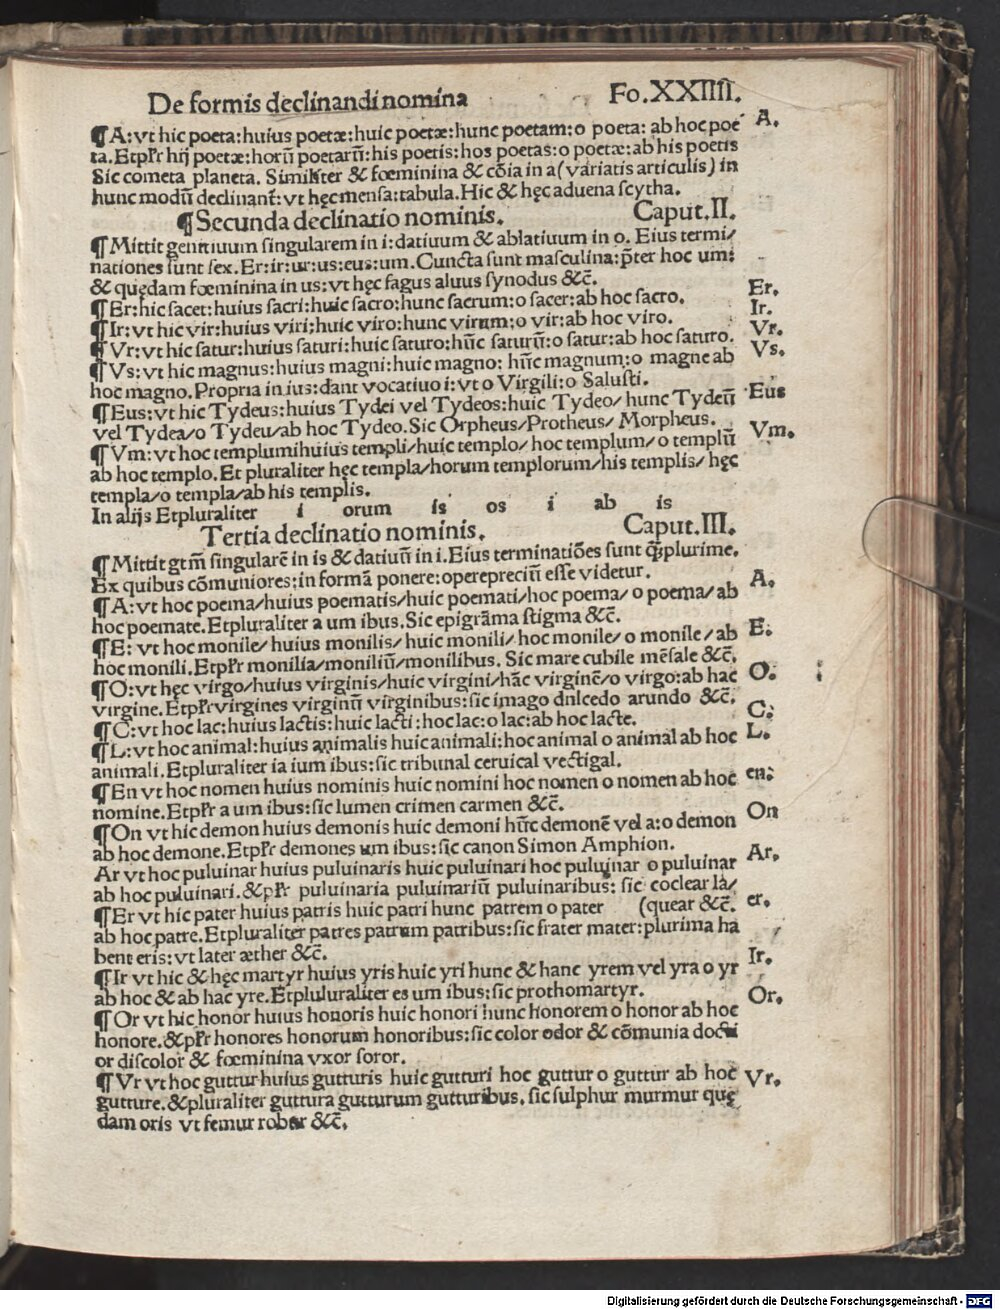 De formis declinandi nomina Fo.XXIIII.
¶A:vt hic poeta:huius poetæ:huic poetæ:hunc poetam:o poeta: ab hoc poe A.
ta.Etplr̃ hij poetæ:horū poetarū:his poetis:hos poetas:o poetæ:ab his poetis
Sic cometa planeta. Similiter & fœminina & cōia in a(variatis articulis) in
hunc modū declinant̃:vt hęc mensa:tabula.Hic & hęc aduena scytha.
¶Secunda declinatio nominis. Caput.II.
¶Mittit genitiuum singularem in i:datiuum & ablatiuum in o. Eius termi/
nationes sunt sex.Er:ir:ur:us:eus:um.Cuncta sunt masculina:p̄ter hoc um:
& quędam fœminina in us:vt hęc fagus aluus synodus &c̄.
¶Er:hic sacer:huius sacri:huic sacro:hunc sacrum:o sacer:ab hoc sacro. Er.
¶Ir:vt hic vir:huius viri:huic viro:hunc virum:o vir:ab hoc viro. Ir.
¶Vr:vt hic satur:huius saturi:huic saturo:hūc saturū:o satur:ab hoc saturo. Vr.
¶Vs:vt hic magnus:huius magni:huic magno: hūc magnum:o magne ab Vs.
hoc magno.Propria in ius:dant vocatiuo i:vt o Virgili:o Salusti.
¶Eus:vt hic Tydeus:huius Tydei vel Tydeos:huic Tydeo/hunc Tydeū Eus
vel Tydea/o Tydeu/ab hoc Tydeo.Sic Orpheus/Protheus/ Morpheus.
¶Vm:vt hoc templumihuius templi/huic templo/ hoc templum/o templū Vm.
ab hoc templo.Et pluraliter hęc templa/horum templorum/his templis/ hęc
templa/o templa/ab his templis.
In alijs Etpluraliter i orum is os i ab is
Tertia declinatio nominis. Caput.III.
¶Mittit gtm̄ singularē in is & datiuū in i.Eius terminatiōes sunt q̃plurime.
Ex quibus cōmuniores:in formā ponere:opereprecíū esse videtur.
¶A:vt hoc poema/huius poematis/huic poemati/hoc poema/ o poema/ ab A.
hoc poemate.Etpluraliter a um ibus.Sic epigrāma stigma &c̄.
¶E: vt hoc monile/huius monilis/huic monili/ hoc monile/ o monile/ ab E.
hoc monili.Etplr̃ monilia/moniliū/monilibus. Sic mare cubile mēsale &c̄.
¶O:vt hęc virgo/huius virginis/huic virgini/hāc virginē/o virgo:ab hac O.
virgine.Etplr̃ virgines virginū virginibus:sic imago dnlcedo arundo &c̄.
¶C:vt hoc lac:huius lactis:huic lacti:hoc lac:o lac:ab hoc lacte. C.
¶L:vt hoc animal:huius animalis huic animali:hoc animal o animal ab hoc L.
animali.Etpluraliter ia ium ibus:sic tribunal ceruical vectigal.
¶En vt hoc nomen huius nominis huic nomini hoc nomen o nomen ab hoc en.
nomine.Etplr̃ a um ibus:sic lumen crimen carmen &c̄.
¶On vt hic demon huius demonis huic demoni hūc demonē vel a:o demon On
ab hoc demone.Etplr̃ demones um ibus:sic canon Simon Amphion.
Ar vt hoc puluinar huius puluinaris huic puluinari hoc puluinar o puluinar Ar.
ab hoc puluinari.&plr̃ puluinaria puluinariū puluinaribus: sic coclear la/
¶Er vt hic pater huius patris huic patri hunc patrem o pater (quear &c̄. er.
ab hoc patre.Etpluraliter patres patrum patribus:sic frater mater:plurima ha
bent eris:vt later æther &c̄.
¶Ir vt hic & hęc martyr huius yris huic yri hunc & hanc yrem vel yra o yr Ir.
ab hoc & ab hac yre.Etpluluraliter es um ibus:sic prothomartyr.
¶Or vt hic honor huius honoris huic honori hunc honorem o honor ab hoc Or.
honore.&plr̃ honores honorum honoribus:sic color odor & cōmunia docti
or discolor & fœminina vxor soror.
¶Vr vt hoc guttur huius gutturis huic gutturi hoc guttur o guttur ab hoc Vr.
gutture.&pluraliter guttura gutturum gutturibus. sic sulphur murmur quę
dam oris vt femur robur &c̄.
Digitalisierung gefördert durch die Deutsche Forschungsgemeinschaft - DFG